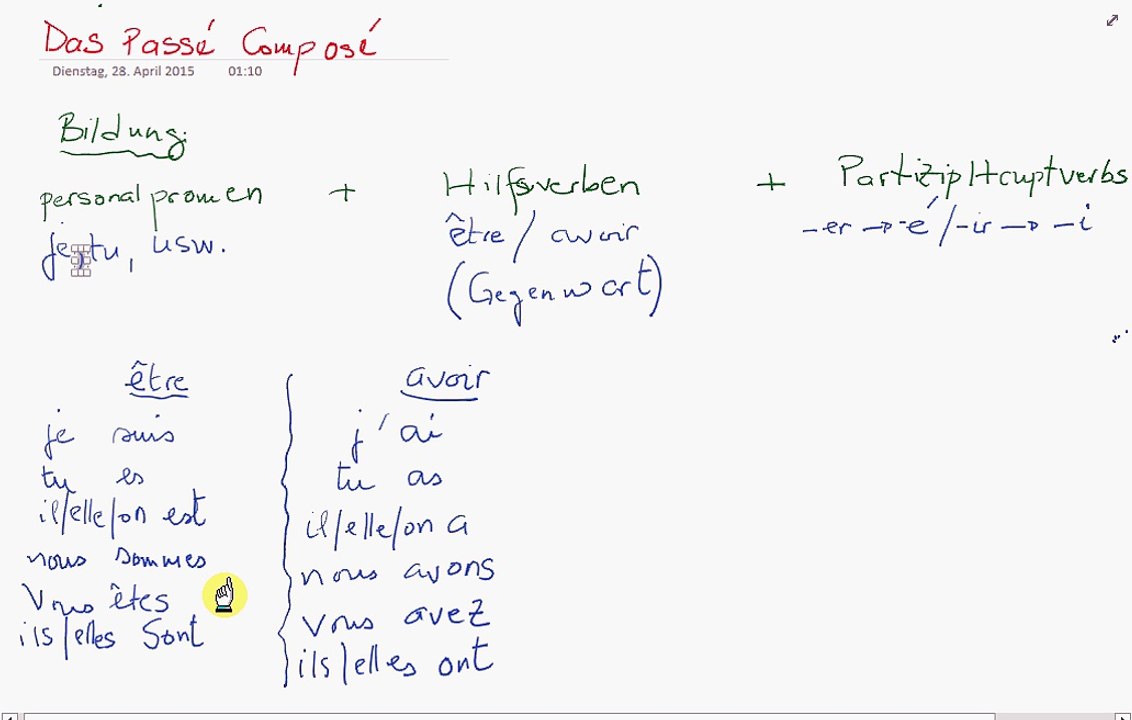 Das Passé Composé
Dienstag, 28. April 2015 01:10
Bildung:
personal promen + Hilfsverben + Partizip Hauptverbs
je, tu, usw. être / avoir -er → -é / -ir → -i
(Gegenwart)
être avoir
je suis j'ai
tu es tu as
il/elle/on est il/elle/on a
nous sommes nous avons
Vous êtes vous avez
ils/elles Sont ils/elles ont